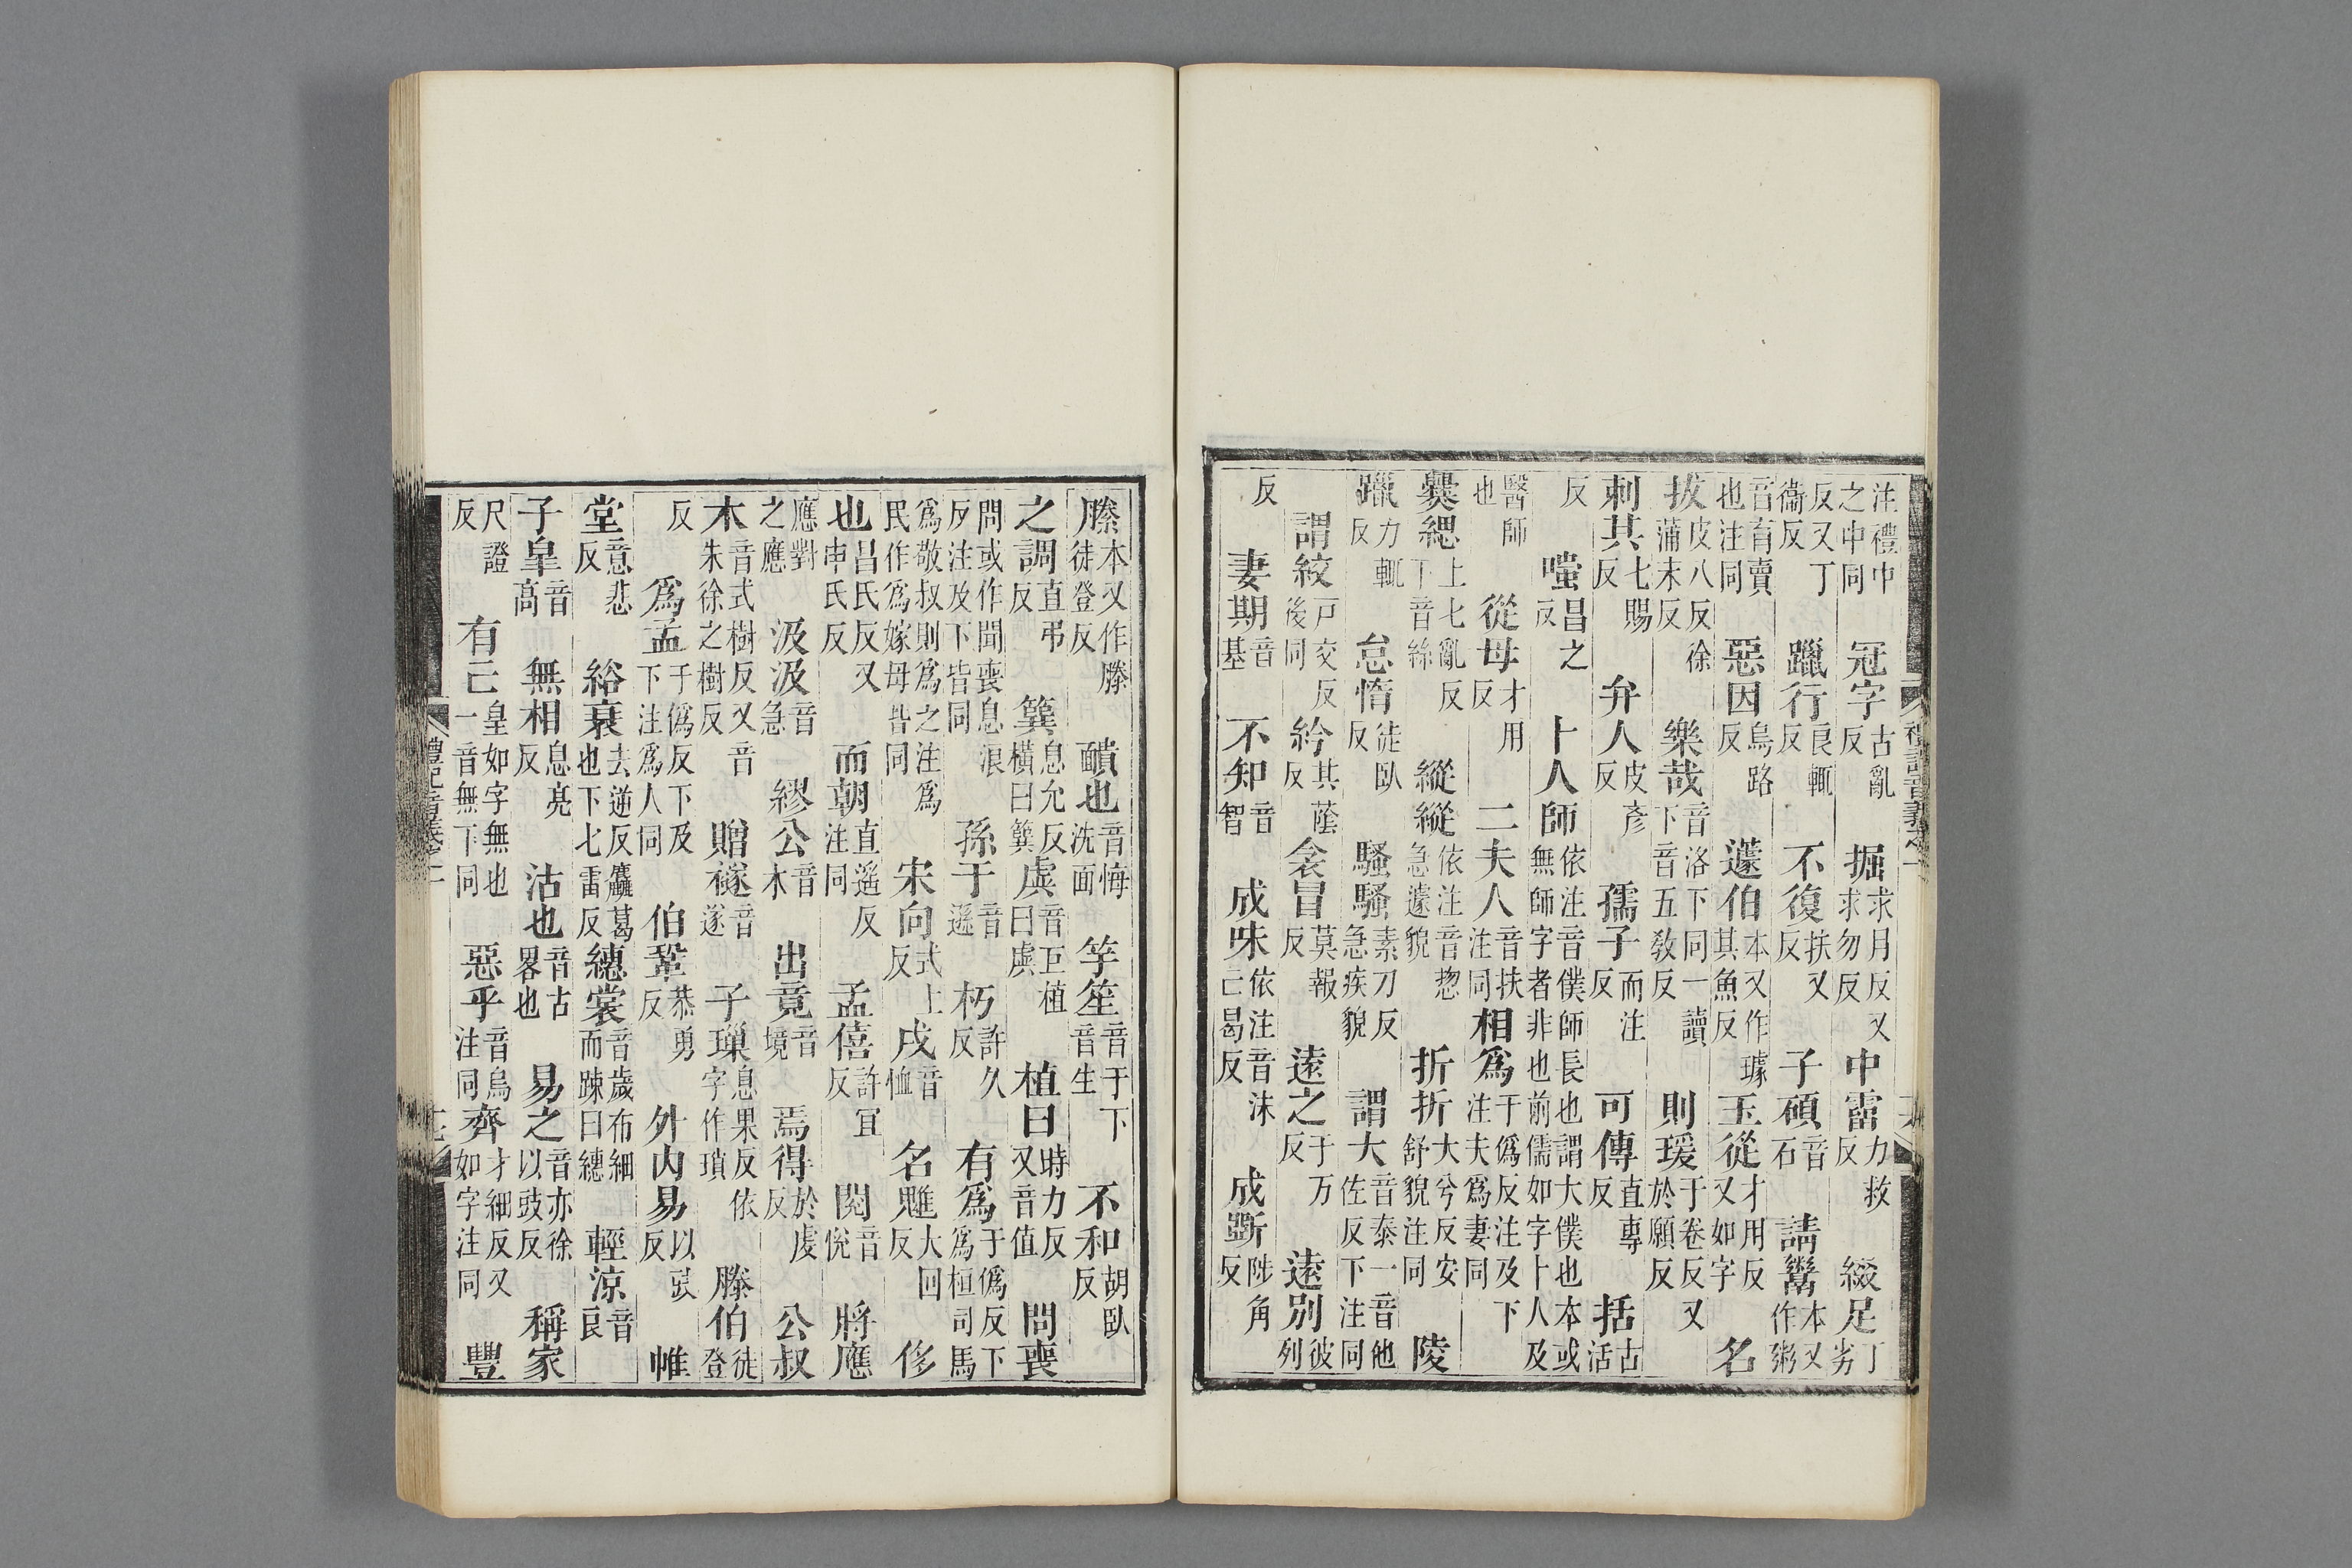 注禮中之中同冠字古亂反掘求月反又求勿反中霤力救反綴足丁劣
反又丁衞反躐行良輒反不復扶又反子碩音石請鬻本又作粥
音育賣也注同惡因烏路反蘧伯本又作璩其魚反玉從才用反又如字名
拔皮八反徐蒲末反樂哉音洛下同一讀下音五敎反則瑗于卷反又於願反
刺其七賜反弁人皮彥反孺子而注反可傳直專反括古活
反嗤昌之反卜人師依注音僕師長也謂大僕也本或無師字者非也前儒如字卜人及
醫師也從母才用反二夫人音扶注同相爲于僞反注及下注夫爲妻同
爨緦上七亂反下音絲縱縱依注音揔急遽貌折折大兮反安舒貌注同陵
躐力輒反怠惰徒臥反騷騷素刀反急疾貌謂大音泰一音他佐反下注同
謂絞戸交反後同紟其蔭反衾冒莫報反遠之于万反遠別彼列
反妻期音基不知音智成味依注音沬亡曷反成斲陟角反
禮記音義之一
滕本又作縢徒登反靧也音悔洗面竽笙音于下音生不和胡臥反
之調直弔反簨息允反橫曰簨虡音巨植曰虡植曰時力反又音值問喪
問或作聞喪息浪反注及下皆同孫于音遜朽許久反有爲于僞反下爲桓司馬
爲敬叔則爲之注爲民作爲嫁母皆同宋向式上反戌音恤名魋大回反侈
也昌氏反又申氏反而朝直遙反注同孟僖許宜反閱音悅將應
應對之應汲汲音急繆公音木出竟音境焉得於虔反公叔
木音式樹反又音朱徐之樹反贈襚音遂子璅息果反依字作瑣滕伯徒登
反爲孟于僞反下及下注爲人同伯鞏恭勇反外內易以豉反帷
堂意悲反綌衰去逆反麤葛也下七雷反繐裳音歲布細而踈曰繐輕涼音良
子皐音高無相息亮反沽也音古畧也易之音亦徐以豉反稱家
尺證反有亡皇如字無也一音無下同惡乎音烏注同齊才細反又如字注同豐
禮記音義之一